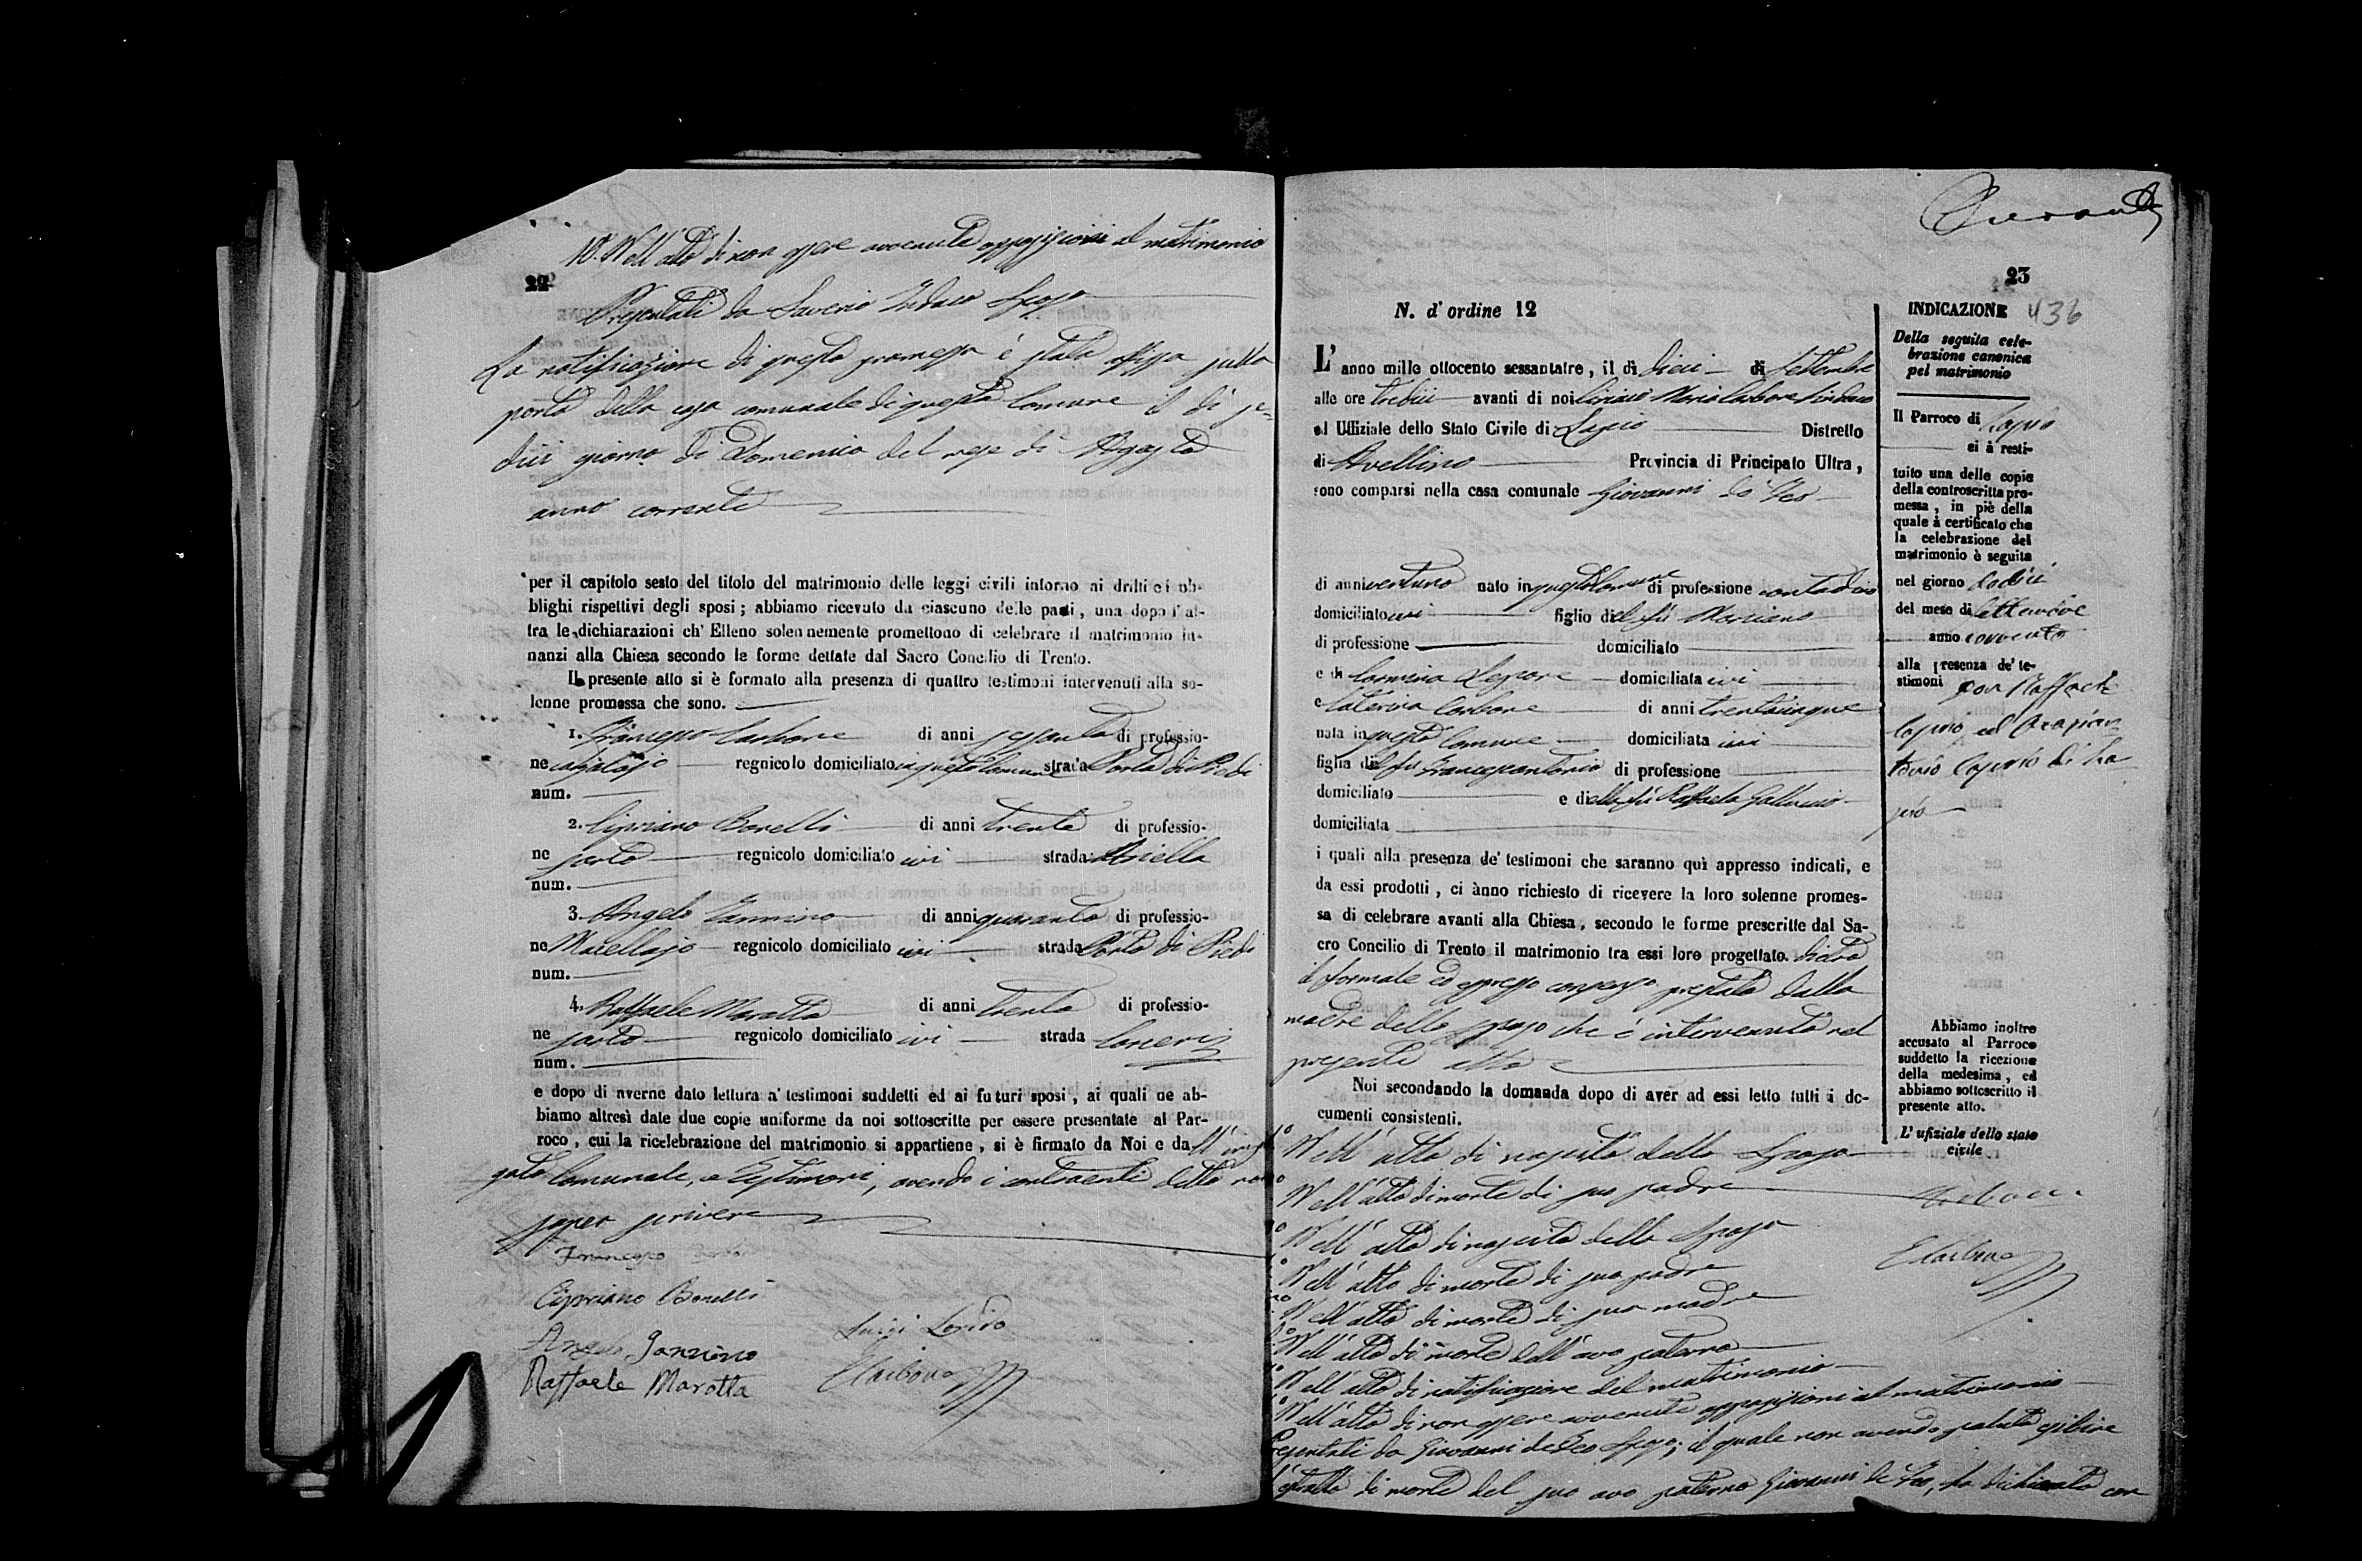 10. Nell'atto di non essere avvenute opposizioni al matrimonio
22
Presentati da Saverio sposo
La notificazione di questa promessa è stata affissa sulla
porta della casa comunale di questo Comune il dì se=
dici giorno di Domenica del mese di Agosto
anno corrente
per il capitolo sesto del titolo del matrimonio delle leggi civili intorno ai dritti ed ob-
blighi rispettivi degli sposi; abbiamo ricevuto da ciascuno delle parti, una dopo l'al-
tra le dichiarazioni ch' Elleno solennemente promettono di celebrare il matrimonio in-
nanzi alla Chiesa secondo le forme dettate dal Sacro Concilio di Trento.
Il presente atto si è formato alla presenza di quattro testimoni intervenuti alla so-
lenne promessa che sono.
1. Francesco Carbone di anni sessanta di professio-
ne regnicolo domiciliato in questo Comune strada Porta di Piedi
num.
2. Cipriano Bonelli di anni trenta di professio-
ne sarto regnicolo domiciliato ivi strada Ariella
num.
3. Angelo Iannino di anni quaranta di professio-
ne Macellajo regnicolo domiciliato ivi strada Porta di Piedi
num.
4. Raffaele Marotta di anni trenta di professio-
ne sarto regnicolo domiciliato ivi strada
num.
e dopo di averne dato lettura a' testimoni suddetti ed ai futuri sposi, ai quali ne ab-
biamo altresì date due copie uniforme da noi sottoscritte per essere presentate al Par-
roco, cui la ricelebrazione del matrimonio si appartiene, si è firmato da Noi e dall'impie
gato Comunale, e testimoni, avendo i contraenti detto non
saper scrivere
Francesco
Cipriano Bonelli
Angelo Jannino
Raffaele Marotta
Luigi
Carbone
23
436
N. d' ordine 12
L' anno mille ottocento sessantatre, il dì dieci di Settembre
alle ore tredici avanti di noi Maria Carbone Sindaco
ed Uffiziale dello Stato Civile di Lapio Distretto
di Avellino Provincia di Principato Ultra,
sono comparsi nella casa comunale Giovanni de Feo
di anni ventuno nato in questo Comune di professione contadino
domiciliato ivi figlio del fù Marciano
di professione domiciliato
e di Carmina domiciliata ivi
e Caterina Carbone di anni trentacinque
nata in questo Comune domiciliata ivi
figlia del fù Francescantonio di professione
domiciliato e di della fù Raffaela Galluccio
domiciliata
i quali alla presenza de' testimoni che saranno quì appresso indicati, e
da essi prodotti, ci ànno richiesto di ricevere la loro solenne promes-
sa di celebrare avanti alla Chiesa, secondo le forme prescritte dal Sa-
cro Concilio di Trento il matrimonio tra essi loro progettato. dietro
il formale ed espresso consenso prestato dalla
madre dello sposo che è intervenuta nel
presente atto
Noi secondando la domanda dopo di aver ad essi letto tutti i do-
cumenti consistenti.
Nell'atto di nascita dello Sposo
Nell'atto di morte di suo padre
Nell'atto di nascita della Sposa
Nell'atto di morte di suo padre
Nell'atto di morte di sua madre
Nell'atto di morte dell'avo paterno
Nell'atto di notificazione del matrimonio
Nell'atto di non essere avvenute opposizioni al matrimonio
Presentati da Giovanni de Feo Sposo; il quale non avendo potuto esibire
l'estratto di morte del suo avo paterno Giovanni de Feo, ha dichiarato con
INDICAZIONE
Della seguita cele-
brazione canonica
pel matrimonio
Il Parroco di Lapio
ci à resti-
tuito una delle copie
della controscritta pro-
messa, in piè della
quale à certificato che
la celebrazione del
matrimonio è seguita
nel giorno dodici
del mese di Settembre
anno corrente
alla presenza de' te-
stimoni
di La
pio
Abbiamo inoltre
accusato al Parroco
suddetto la ricezione
della medesima, ed
abbiamo sottoscritto il
presente atto.
L' ufiziale dello stato
civile
Carbone